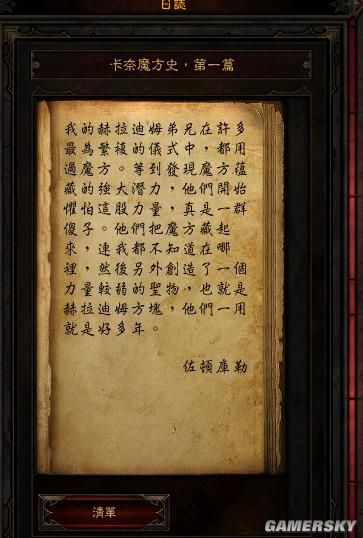 日誌
卡奈魔方史，第一篇
我的赫拉迪姆弟兄在許多
最為繁複的儀式中，都用
過魔方。等到發現魔方蘊
藏的強大潛力，他們開始
懼怕這股力量。真是一群
傻子。他們把魔方藏起
來，連我都不知道在哪
裡，然後另外創造了一個
力量較弱的聖物，也就是
赫拉迪姆方塊，他們一用
就是好多年。
佐頓庫勒
清單
GAMERSKY